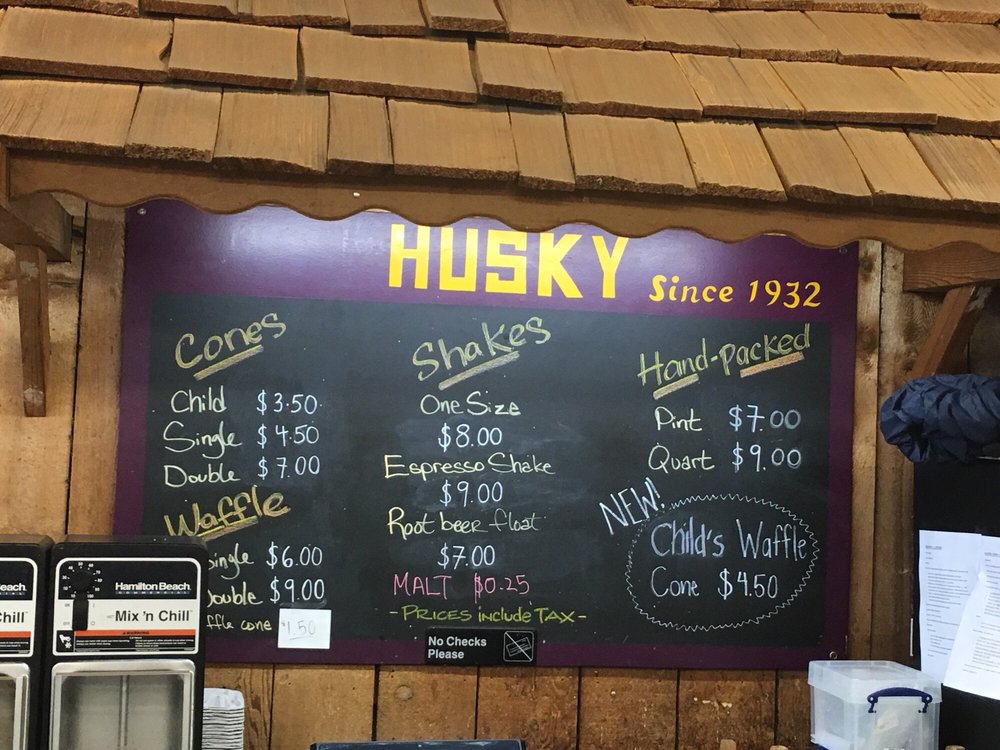 HUSKY Since 1932
Cones
Child $3.50
Single $4.50
Double $7.00
Waffle
ingle $6.00
ouble $9.00
ffle cone $1.50
Shakes
One Size
$8.00
Espresso Shake
$9.00
Root beer float
$7.00
MALT $0.25
-PRICES include TAX-
Hand-packed
Pint $7.00
Quart $9.00
NEW!
Child's Waffle
Cone $4.50
No Checks
Please
each
hill
Hamilton Beach
COMMERCIAL
Mix 'n Chill
WARNING